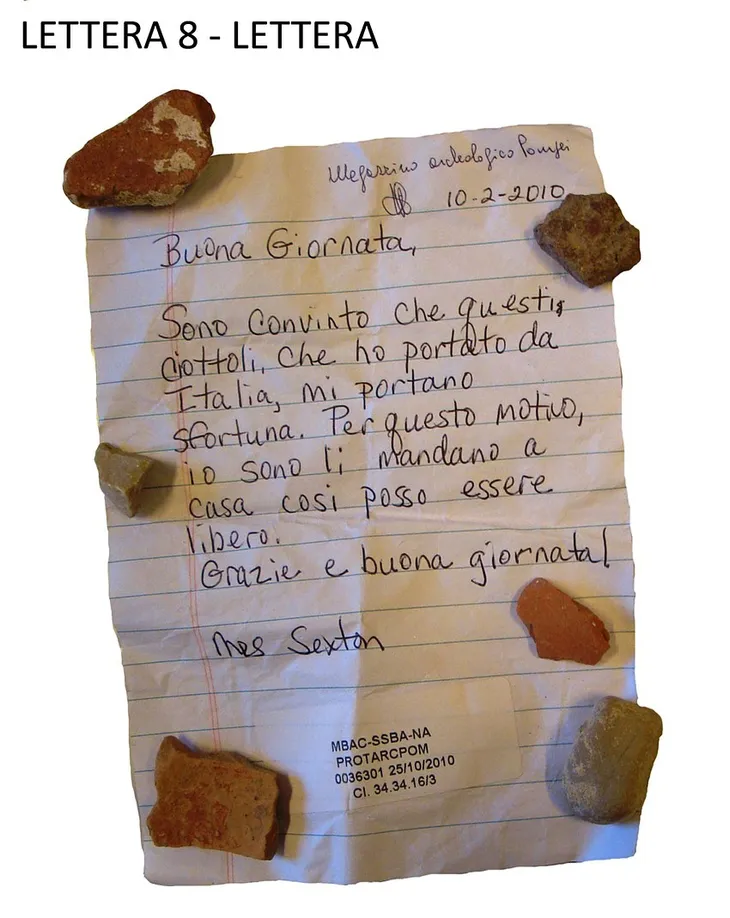 LETTERA 8 - LETTERA
Megazzino archeologico Pompei
10-2-2010
Buona Giornata,
Sono convinto che questi,
ciottoli, che ho portato da
Italia, mi portano
sfortuna. Per questo motivo,
io sono li mandano a
casa cosi posso essere
libero.
Grazie e buona giornata!
Sexton
MBAC-SSBA-NA
PROTARCPOM
0036301 25/10/2010
Cl. 34.34.16/3